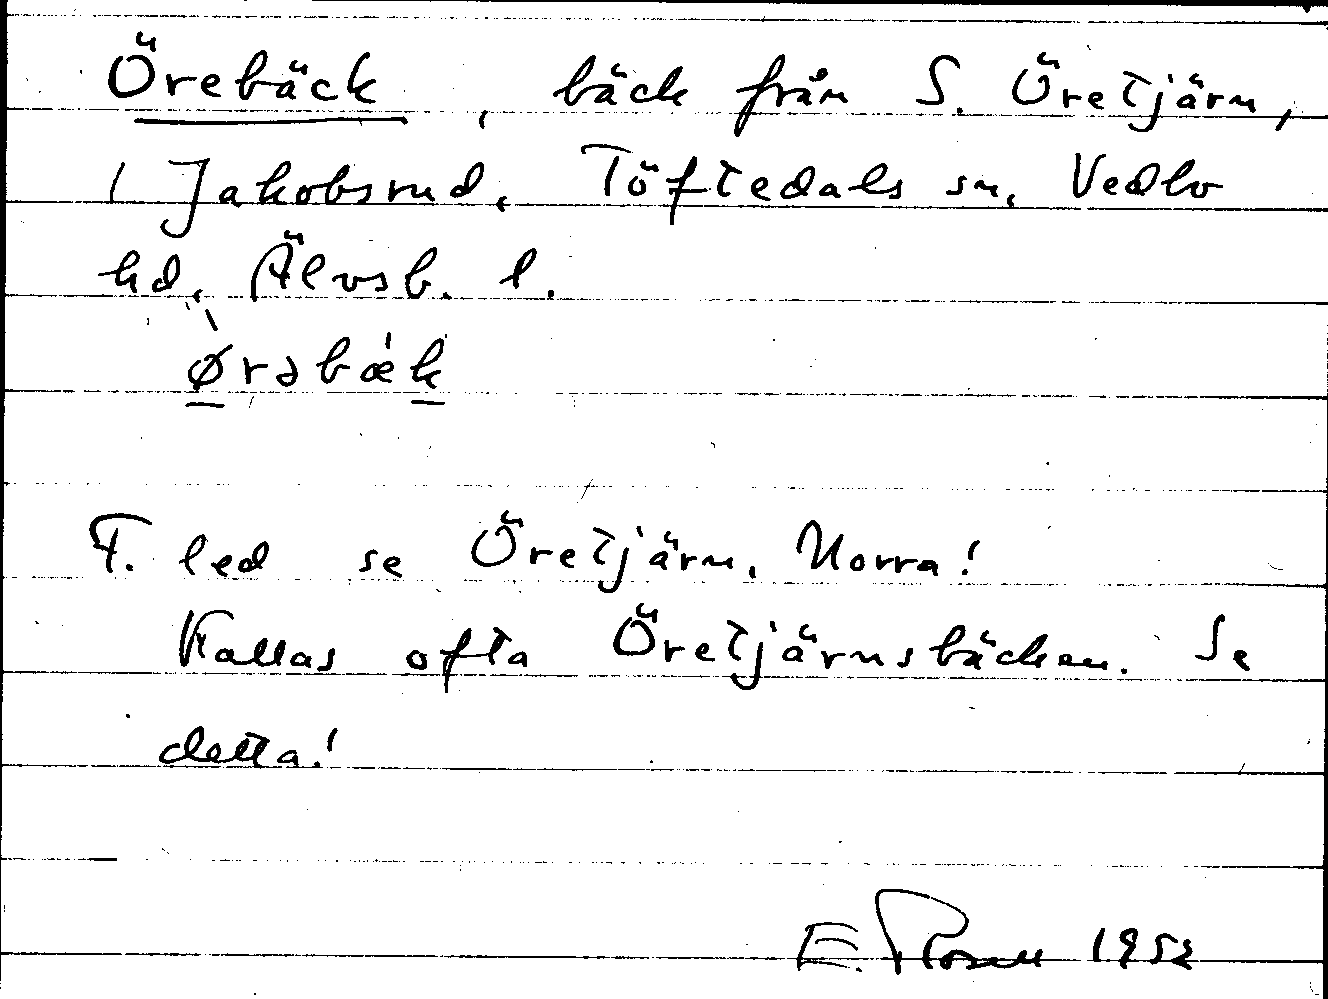 Örebäck, bäck från S. Öretjärn,
1 Jakobsrud, Töftedals sn, Vedbo
hd, Älvsb. l.
\ørəbæ'k
F. led se Öretjärn, Norra!
Kallas ofta Öretjärnsbäcken. Se
detta!
E. Rosell 1952